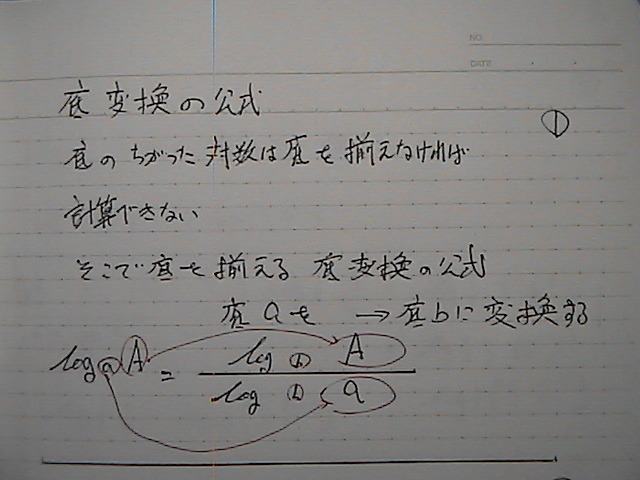 NO.
DATE
底変換の公式
①
底のちがった対数は底を揃えなければ
計算できない
そこで底を揃える 底変換の公式
底aを → 底bに変換する
log a A = log b A / log b a